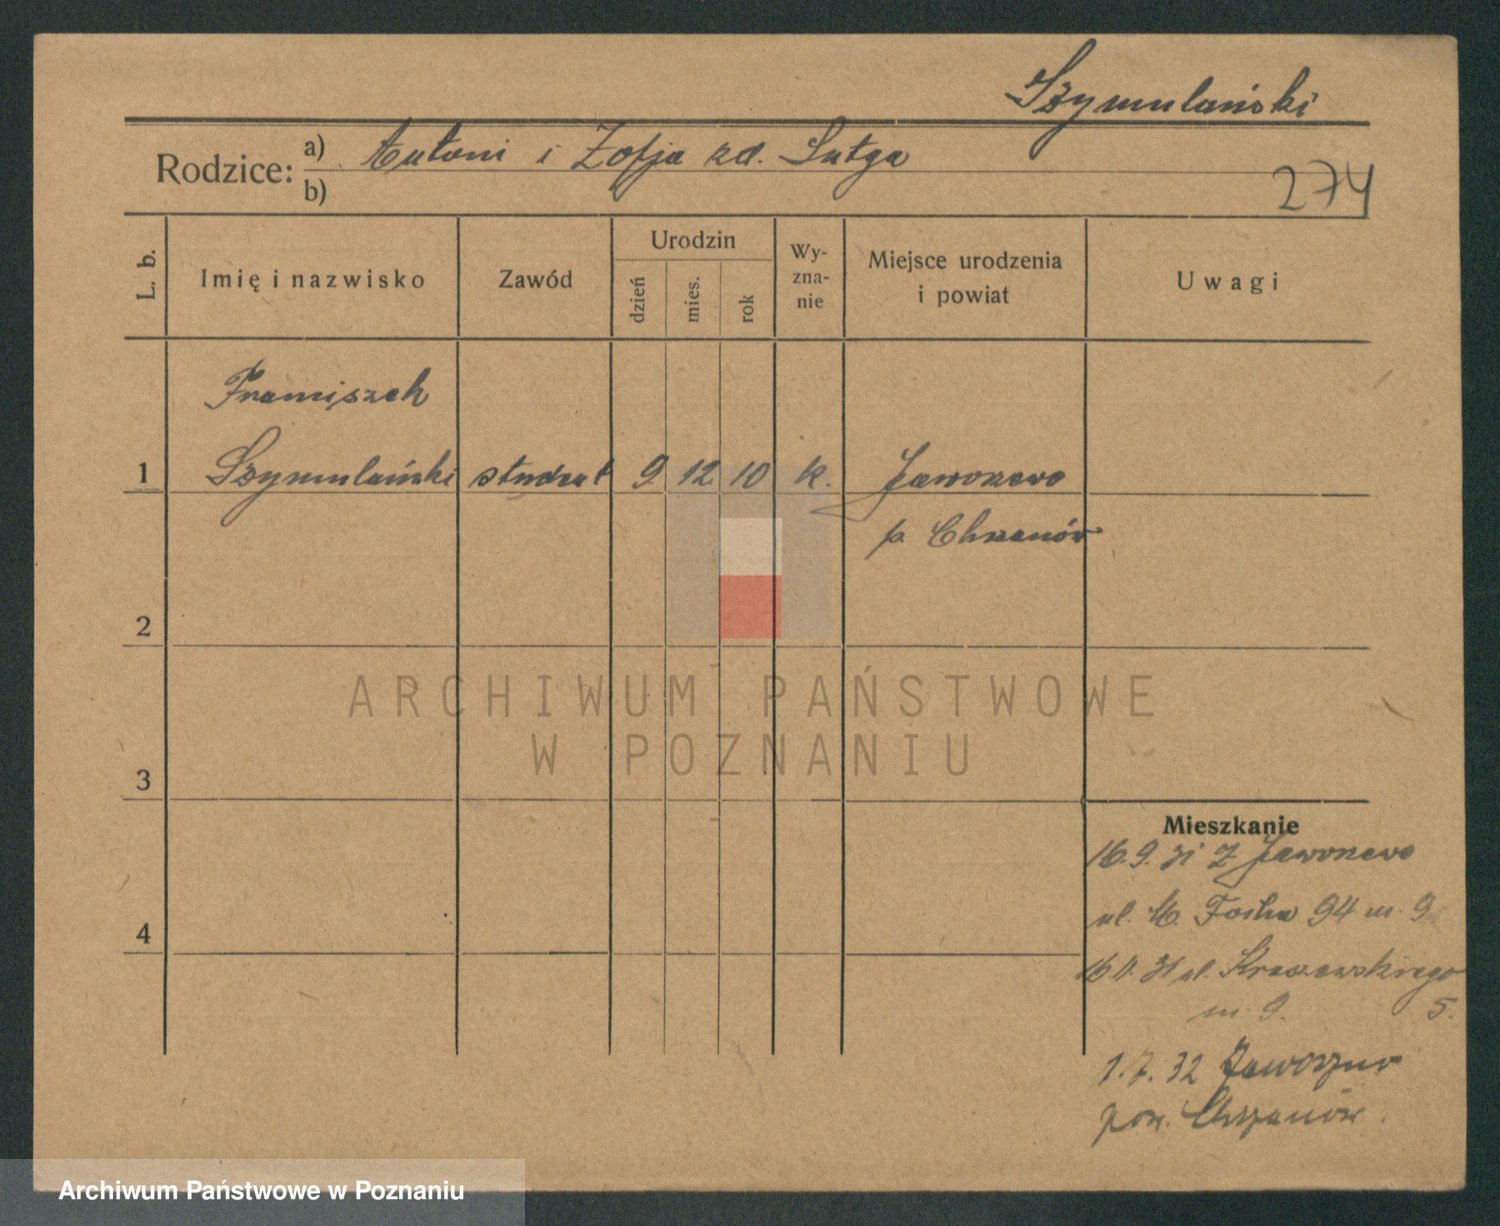 Szymulański
Rodzice: a) Antoni i Zofja zd. Sutga
b)
274
L. b.
Imię i nazwisko
Zawód
Urodzin
dzień
mies.
rok
Wy-
zna-
nie
Miejsce urodzenia
i powiat
Uwagi
Franciszek
1 Szymulański student 9 12 10 k. Jaworzno
p. Chrzanów
2
ARCHIWUM PAŃSTWOWE
W POZNANIU
3
Mieszkanie
16.9.31 z Jaworzna
ul. M. Focha 94 m. 9
4
16.11.31 ul. Kraszewskiego
m. 9. 5.
1.7.32 Jaworzno
pow. Chrzanów.
Archiwum Państwowe w Poznaniu